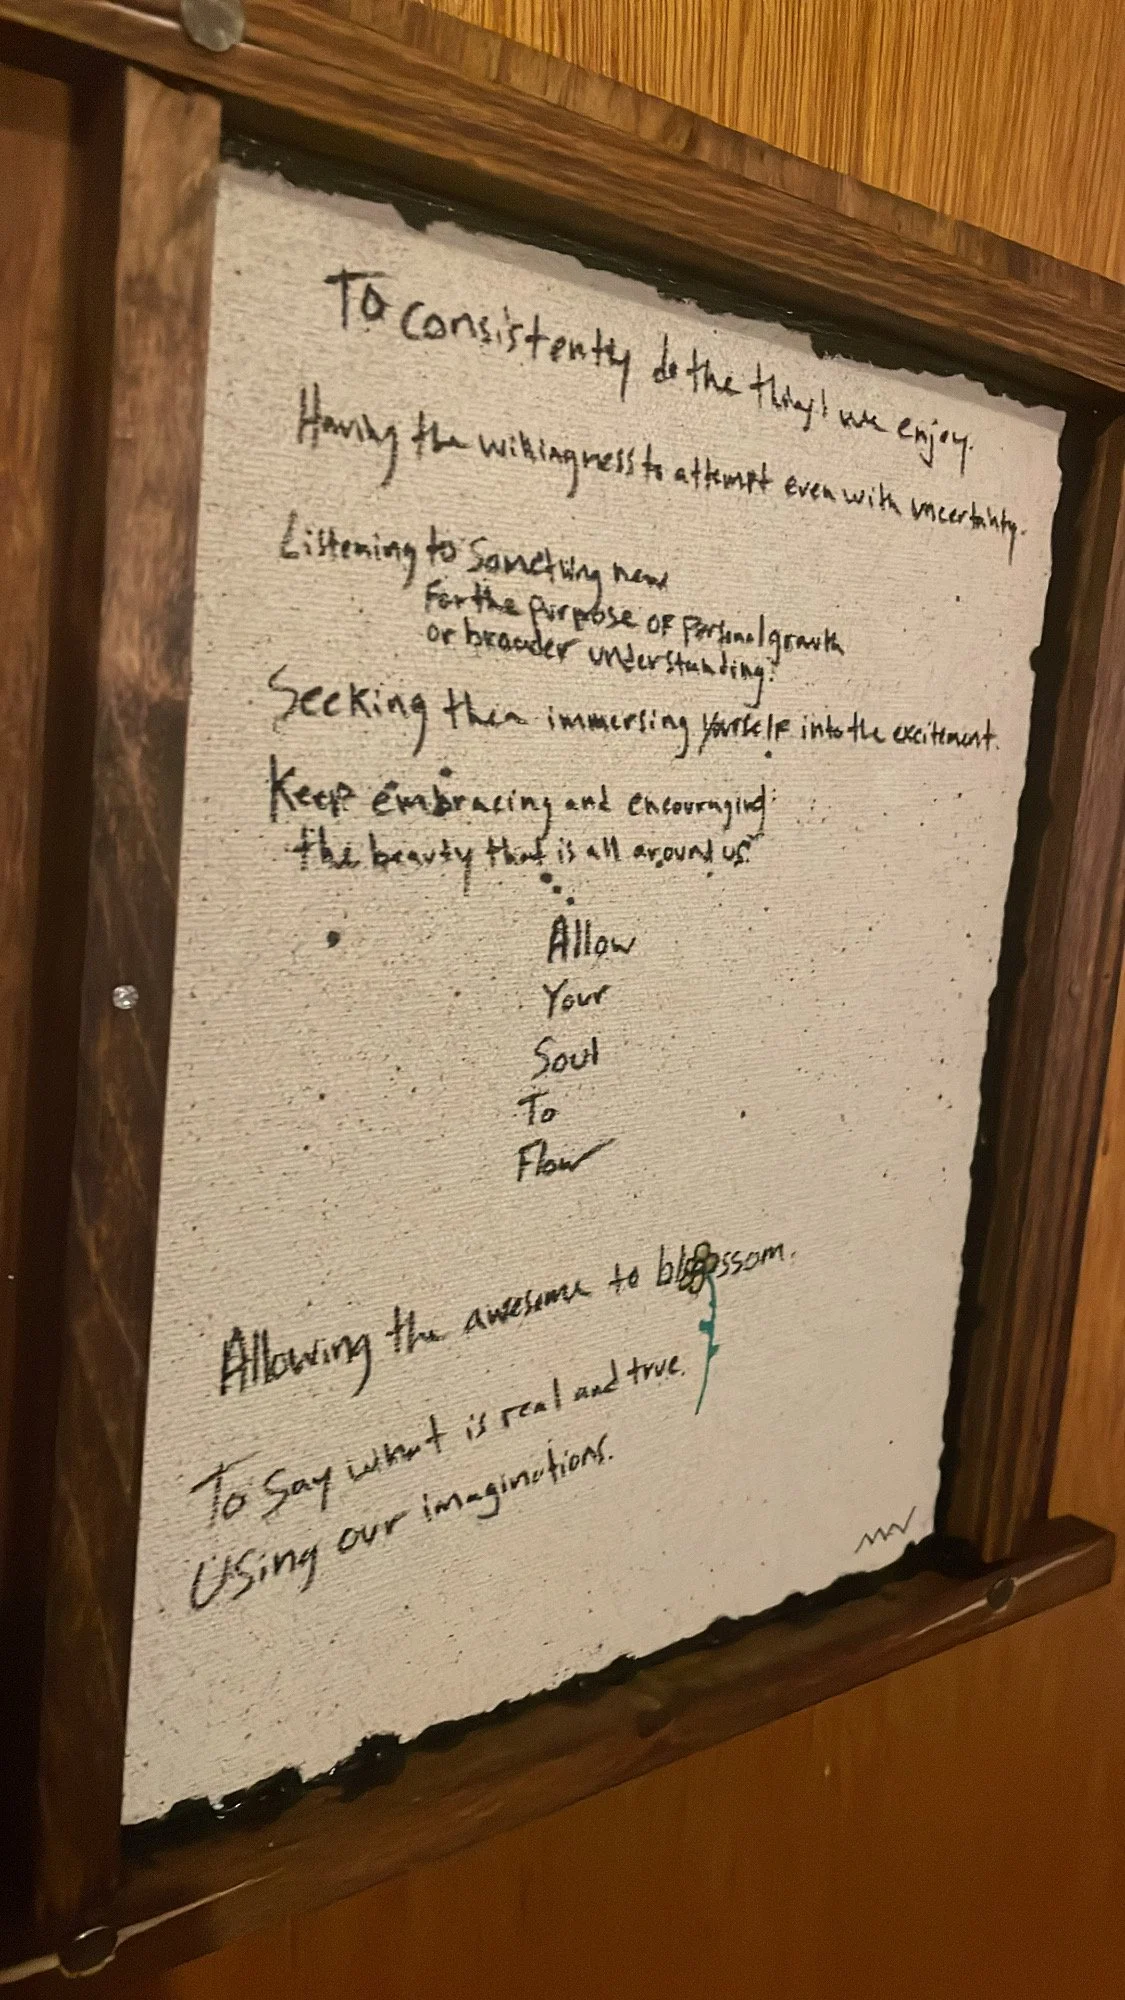 To consistently do the things we enjoy.
Having the willingness to attempt even with uncertainty.
Listening to something new
For the purpose of personal growth
or broader understanding.
Seeking then immersing yourself into the excitement.
Keep embracing and encouraging
the beauty that is all around us.
Allow
Your
Soul
To
Flow
Allowing the awesome to blossom.
To say what is real and true.
Using our imaginations.